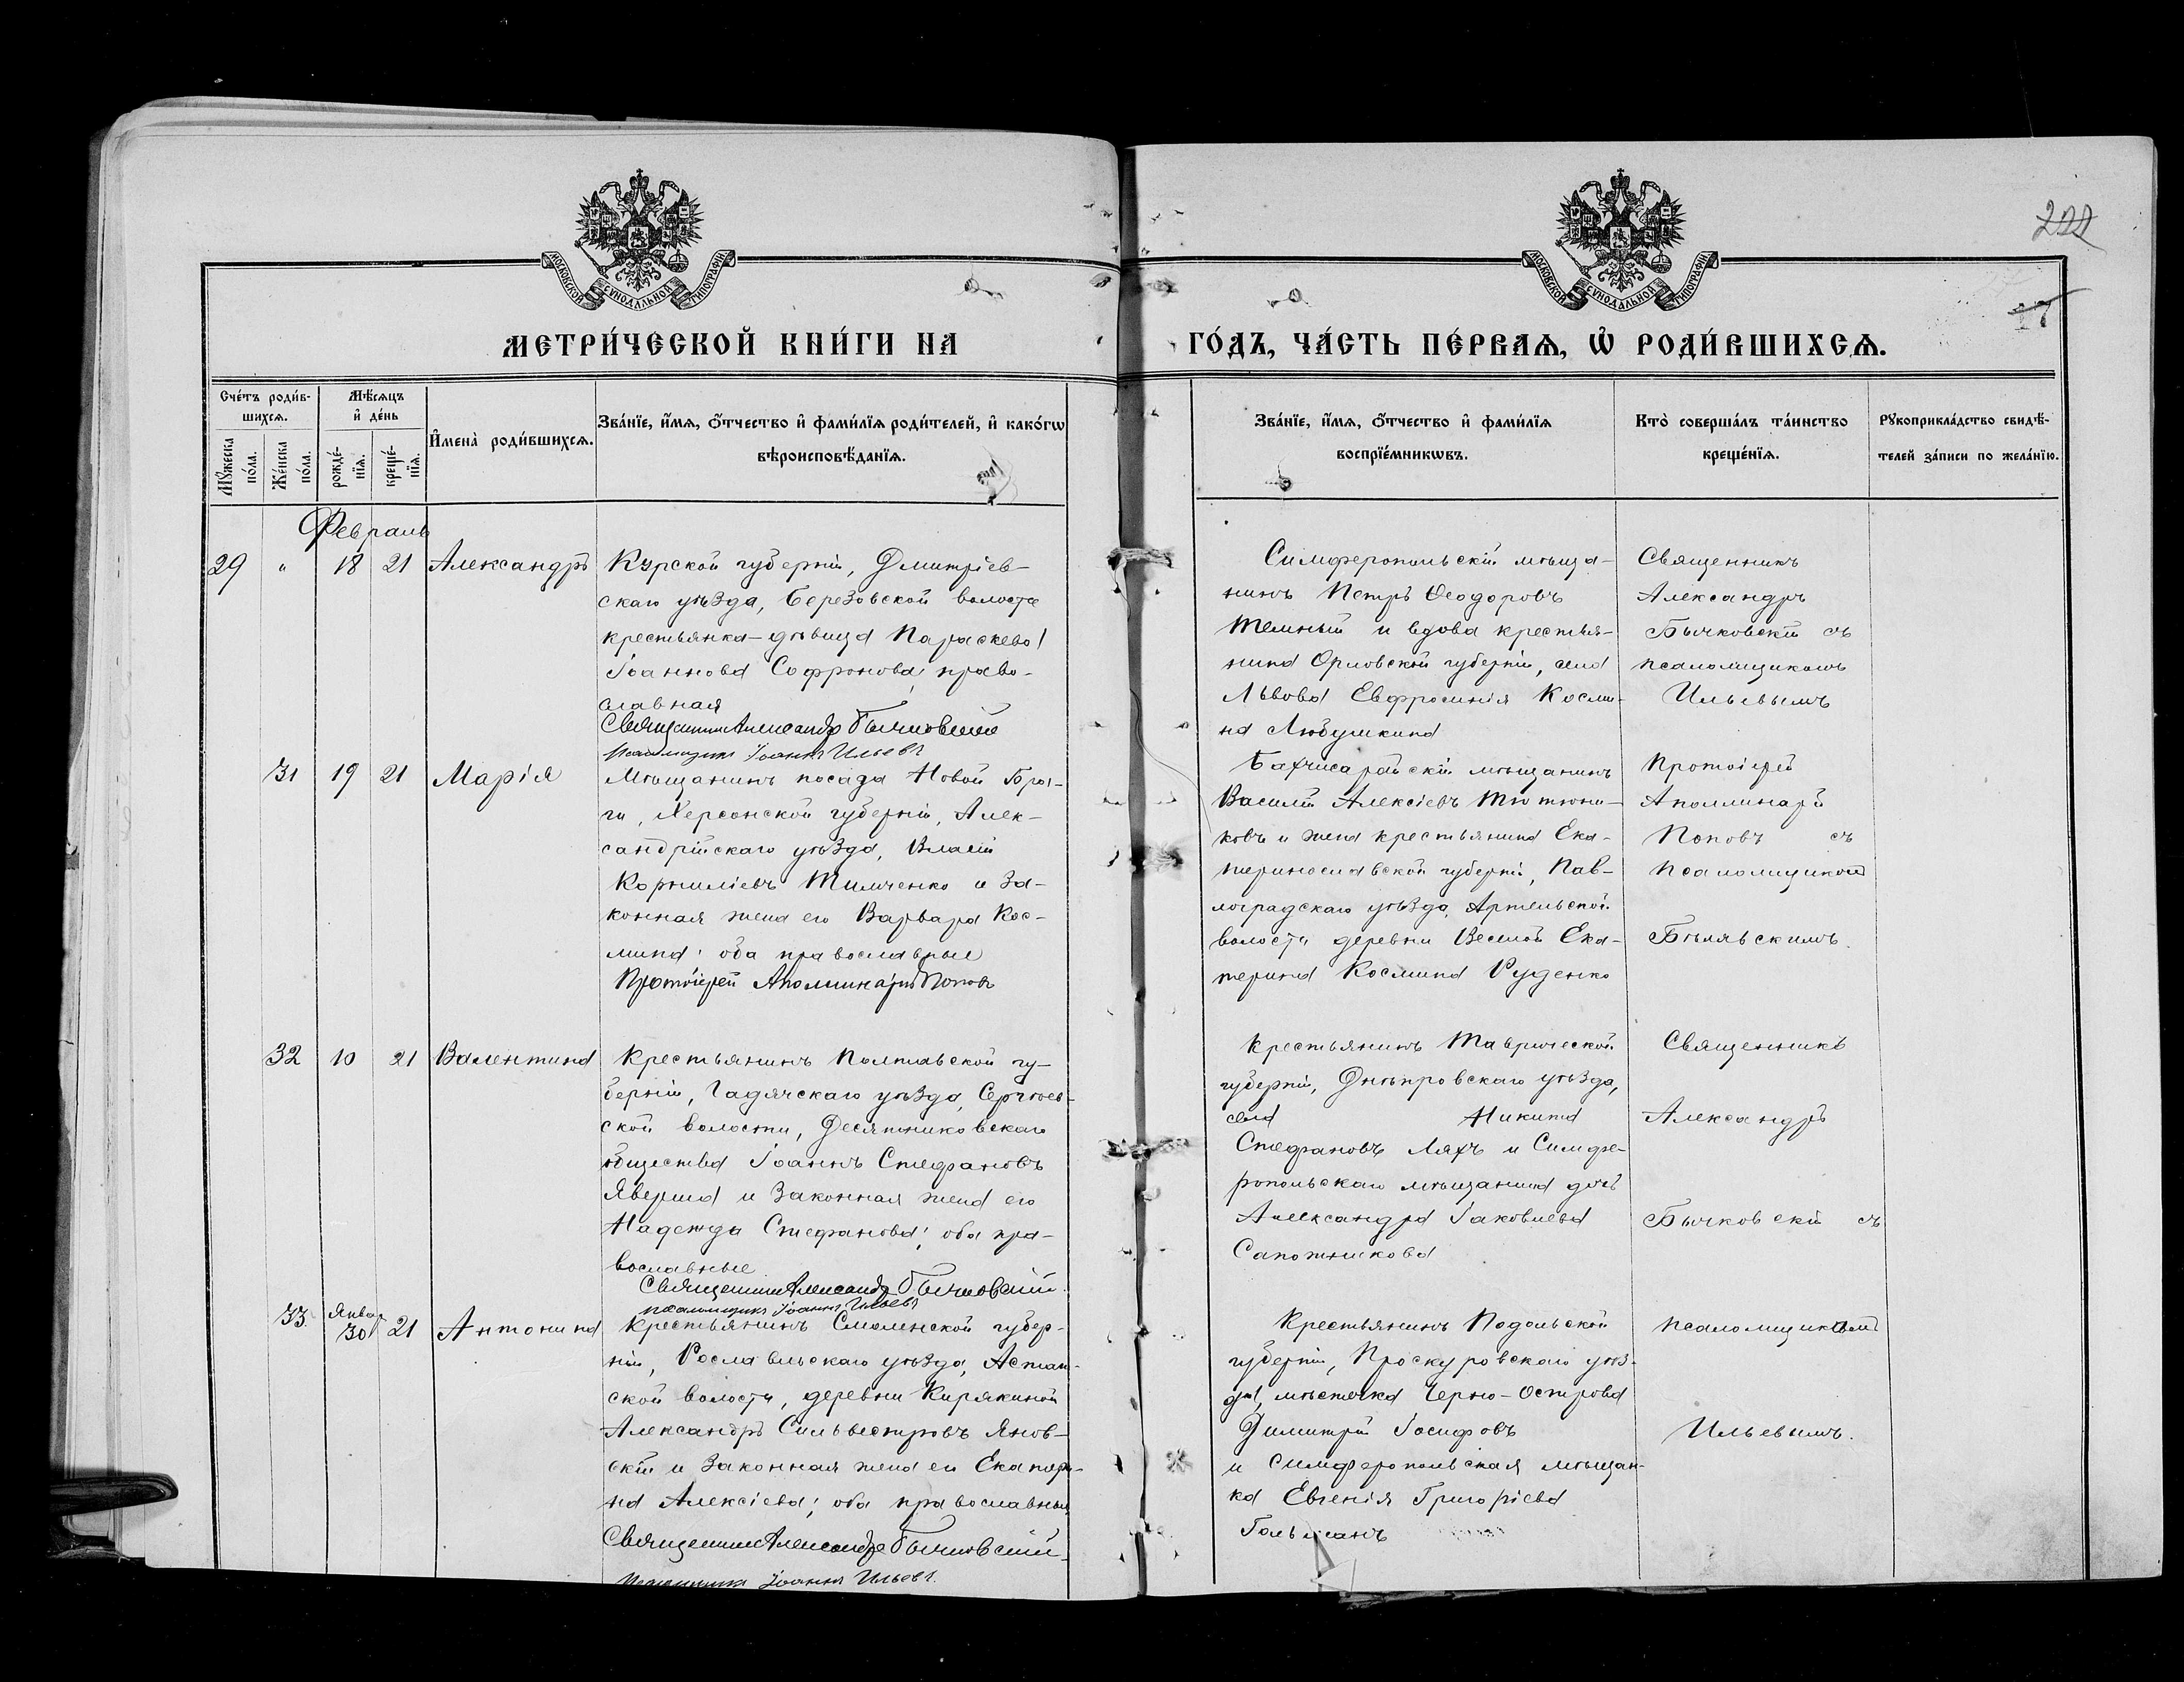 222
17
МОСКОВСКОЙ СѴНОДАЛЬНОЙ ТИПОГРАФІИ
МОСКОВСКОЙ СѴНОДАЛЬНОЙ ТИПОГРАФІИ
МЕТРИ́ЧЕСКОЙ КНИ́ГИ НА ГО́ДЪ, ЧА́СТЬ ПЕ́РВАѦ, Ѡ҆ РОДИ́ВШИХСѦ.
Сче́тъ роди́в-
шихсѧ.
Мꙋ́жеска
по́ла.
Же́нска
по́ла.
Мѣ́сѧцъ
и҆ де́нь
рожде́-
нїѧ.
креще́-
нїѧ.
И҆мена̀ роди́вшихсѧ.
Зва́нїе, и҆́мѧ, ѻ҆́тчество и҆ фами́лїѧ роди́телей, и҆ како́гѡ
вѣроисповѣ́данїѧ.
Зва́нїе, и҆́мѧ, ѻ҆́тчество и҆ фами́лїѧ
воспрїе́мникѡвъ.
Кто̀ соверша́лъ та́инство
креще́нїѧ.
Рꙋкоприкла́дство свидѣ́-
телей за́писи по жела́нїю.
Февраль
29 " 18 21 Александръ
Курской губерніи, Дмитріев-
скаго уѣзда, Березовской волости
крестьянка-дѣвица Параскева
Іоаннова Софронова, право-
славная
Священникъ Александръ Бычковскій
Псаломщикъ Іоаннъ Ильевъ
Симферопольскій мѣща-
нинъ Петръ Ѳеодоровъ
Темный и вдова крестья-
нина Орловской губерніи, села
Львова Евфросинія Косми-
на Любушкина
Священникъ
Александръ
Бычковскій съ
псаломщикомъ
Ильевымъ
31 19 21 Марія
Мѣщанинъ посада Новой Пра-
ги, Херсонской губерніи, Алек-
сандрійскаго уѣзда, Власій
Корниліевъ Тимченко и за-
конная жена его Варвара Кос-
мина; оба православные
Протоіерей Аполлинарій Поповъ
Бахчисарайскій мѣщанинъ
Василій Алексіевъ Тютюни-
ковъ и жена крестьянина Ека-
теринославской губерніи, Пав-
лоградскаго уѣзда, Артельской
волости деревни Веселой Ека-
терина Космина Руденко
Протоіерей
Аполлинарій
Поповъ съ
псаломщикомъ
Бѣлявскимъ.
32 10 21 Валентина
Крестьянинъ Полтавской гу-
берніи, Гадячскаго уѣзда, Сергіев-
ской волости, Десятниковскаго
общества Іоаннъ Стефановъ
Явериа и законная жена его
Надежда Стефанова; оба пра-
вославные
Священникъ Александръ Бычковскій.
псаломщикъ Іоаннъ Ильевъ
Крестьянинъ Таврической
губерніи, Днѣпровскаго уѣзда,
села Никита
Стефановъ Ляхъ и Симфе-
ропольскаго мѣщанина дочь
Александра Іаковлева
Сапожникова
Священникъ
Александръ
Бычковскій съ
33. Январ 30 21 Антонина
Крестьянинъ Смоленской губер-
ніи, Рославльскаго уѣзда, Астап-
ской волости, деревни Кирякиной
Александръ Сильвестровъ Янов-
скій и законная жена его Екатери-
на Алексіева; оба православные
Священникъ Александръ Бычковскій.
Псаломщикъ Іоаннъ Ильевъ.
Крестьянинъ Подольской
губерніи, Проскуровскаго уѣз-
да, мѣстечка Черно-Острова
Димитрій Іосифовъ
и Симферопольская мѣщан-
ка Евгенія Григоріева
Гольманъ
псаломщикомъ
Ильевымъ.